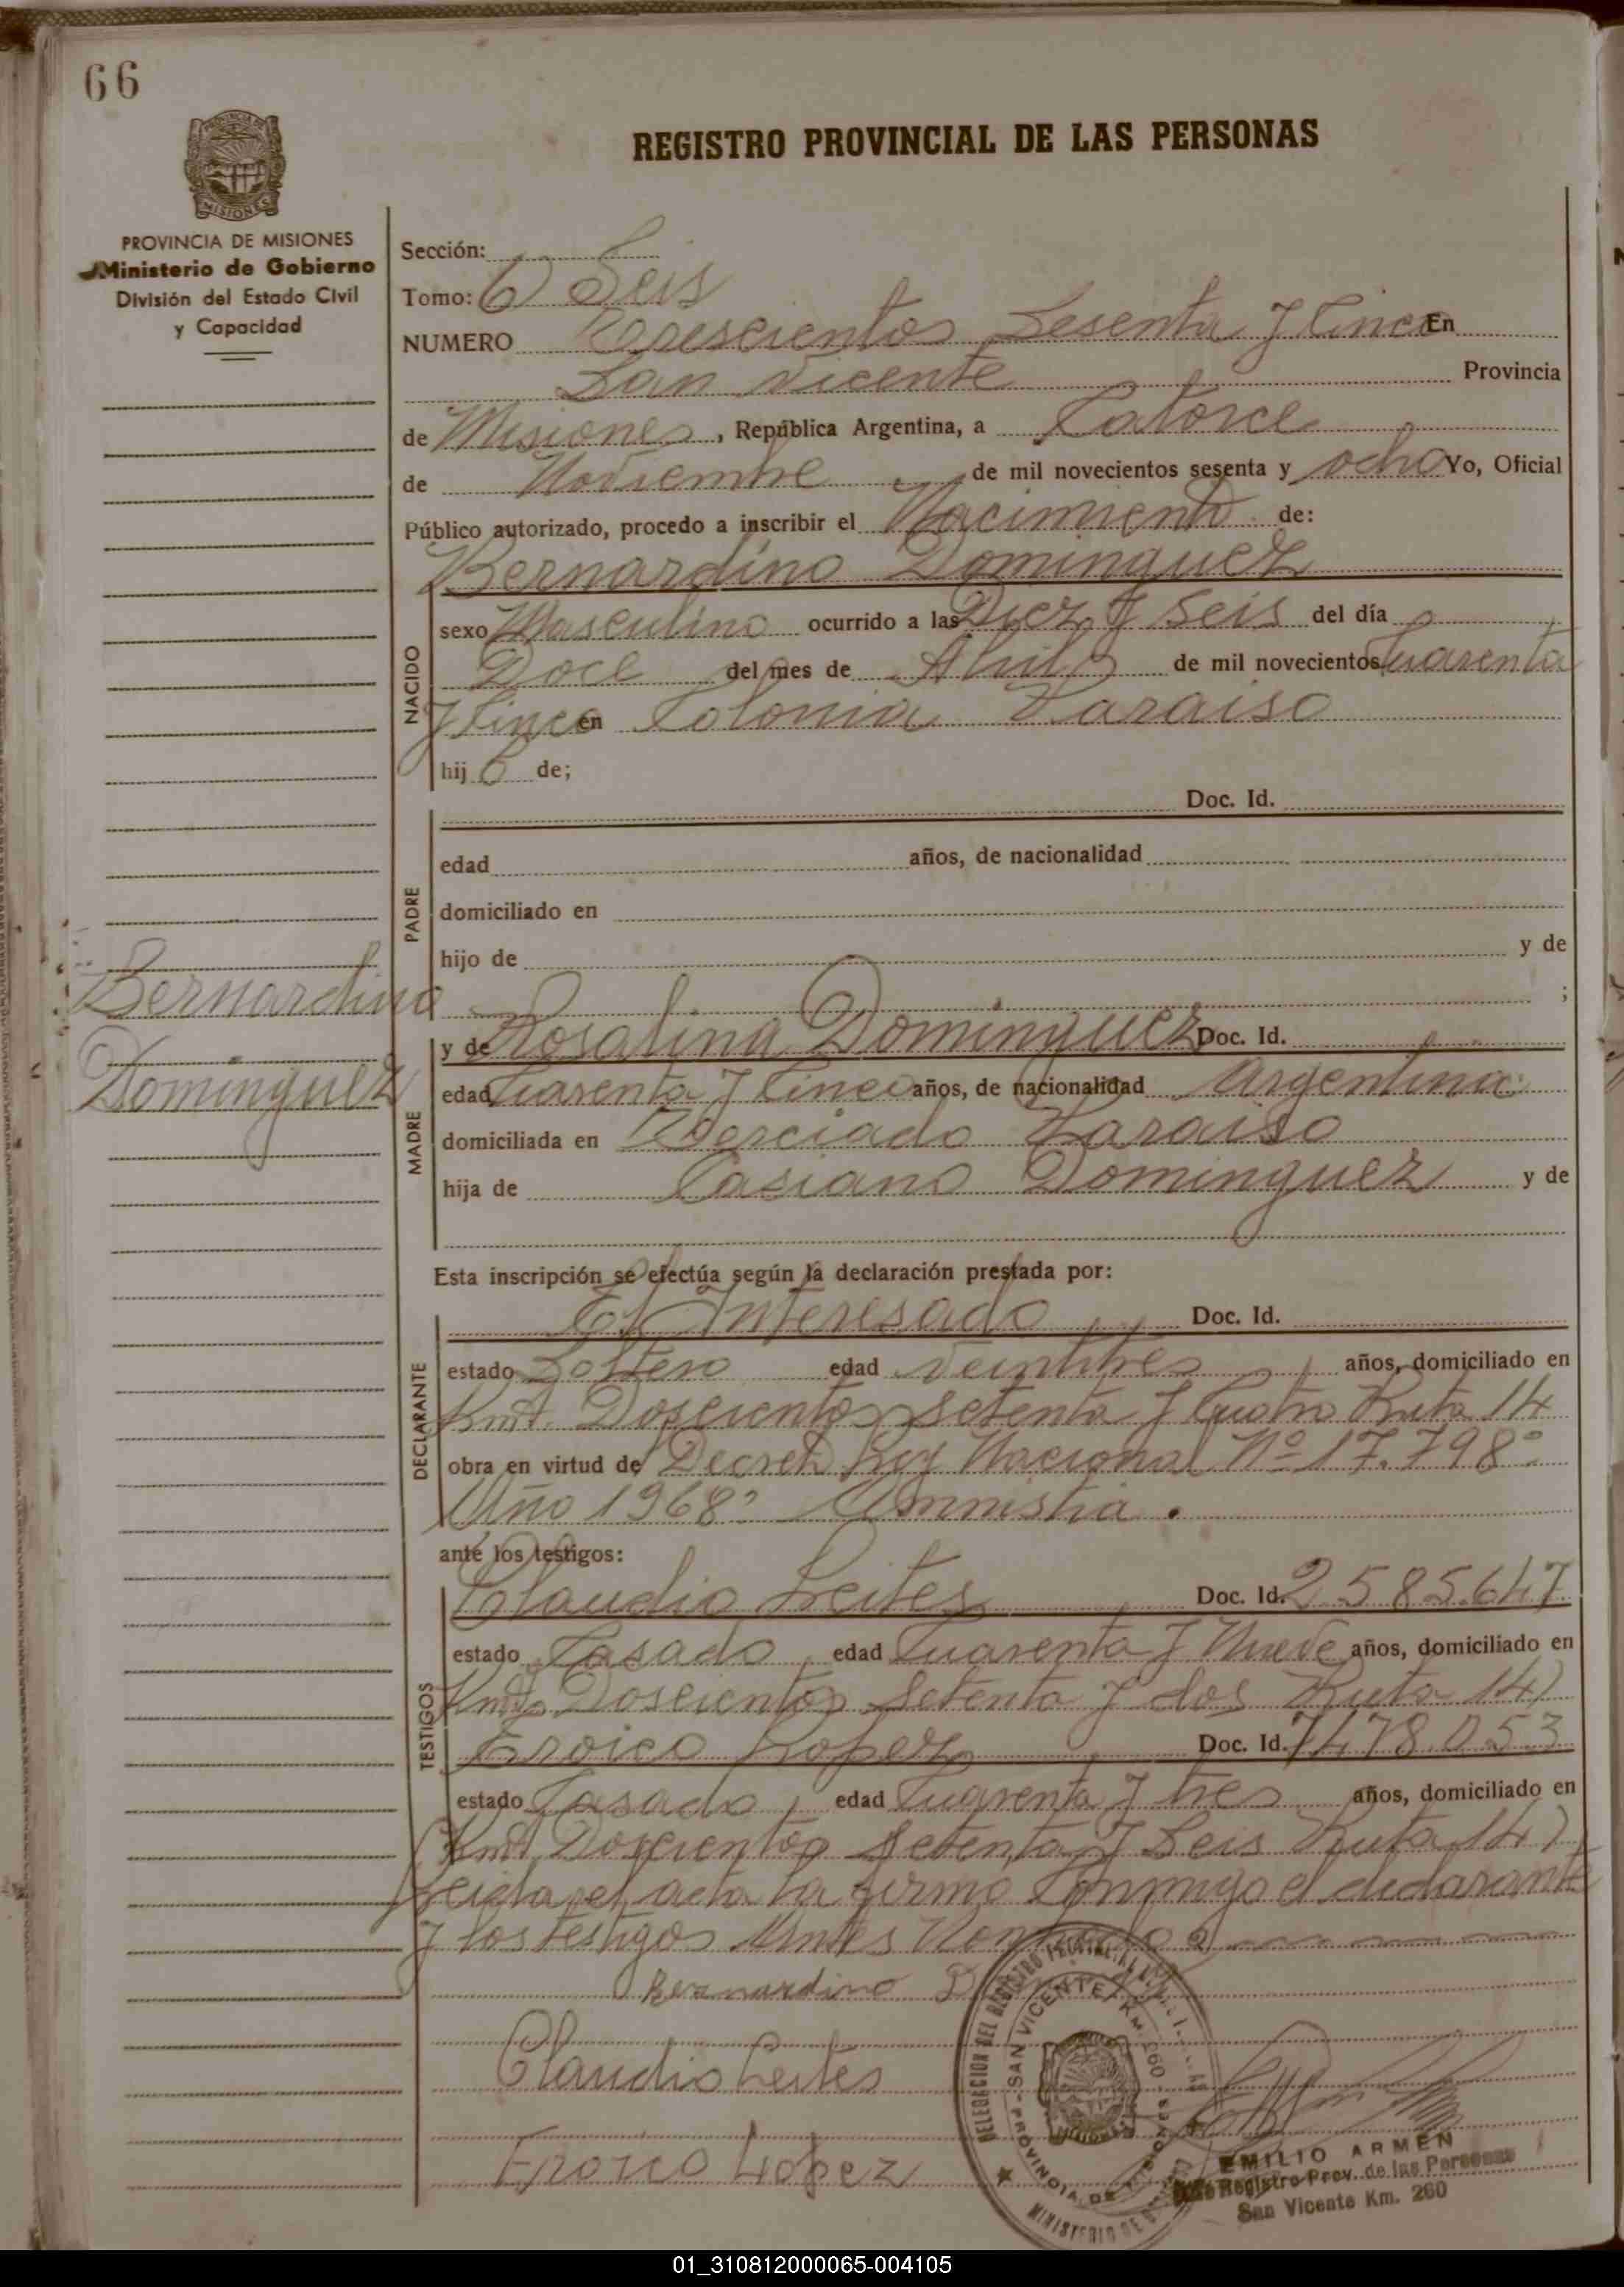 66
PROVINCIA DE MISIONES
MISIONES
PROVINCIA DE MISIONES
Ministerio de Gobierno
División del Estado Civil
y Capacidad
REGISTRO PROVINCIAL DE LAS PERSONAS
Sección:
Tomo: 6 Seis
NUMERO Trescientos Sesenta y Cinco En
San Vicente Provincia
de Misiones, República Argentina, a Catorce
de Noviembre de mil novecientos sesenta y ocho Yo, Oficial
Público autorizado, procedo a inscribir el Nacimiento de:
Bernardino Dominguez
NACIDO
sexo Masculino ocurrido a las Diez y Seis del día
Doce del mes de Abril de mil novecientos Cuarenta
y Cinco en Colonia Paraiso
hij o de;
PADRE
Doc. Id.
edad años, de nacionalidad
domiciliado en
hijo de y de
;
Bernardino
Dominguez
MADRE
y de Rosalina Dominguez Doc. Id.
edad Cuarenta y Cinco años, de nacionalidad Argentina
domiciliada en Paraiso
hija de Casiano Dominguez y de
Esta inscripción se efectúa según la declaración prestada por:
DECLARANTE
El Interesado Doc. Id.
estado Soltero edad Veintitres años, domiciliado en
Kmt. Doscientos Setenta y Cuatro Ruta 14
obra en virtud de Decreto Ley Nacional Nº 17.798º
Año 1968º Amnistia.
ante los testigos:
TESTIGOS
Claudio Leites Doc. Id. 2585.647
estado Casado edad Cuarenta y Nueve años, domiciliado en
Kmt. Doscientos Setenta y dos Ruta 14)
Eroico Lopez Doc. Id. 7478.053
estado Casado, edad Cuarenta y tres años, domiciliado en
Kmt. Doscientos Setenta y Seis Ruta 14)
Leida el acta la firmo Conmigo el declarante
y los testigos Antes
Bernardino D
Claudio Leites
Eroico Lopez
DELEGACION DEL REGISTRO
SAN VICENTE KM. 260
PROVINCIA DE MISIONES
MINISTERIO DE
EMILIO ARMEN
Registro Prov. de las Personas
San Vicente Km. 260
01_310812000065-004105